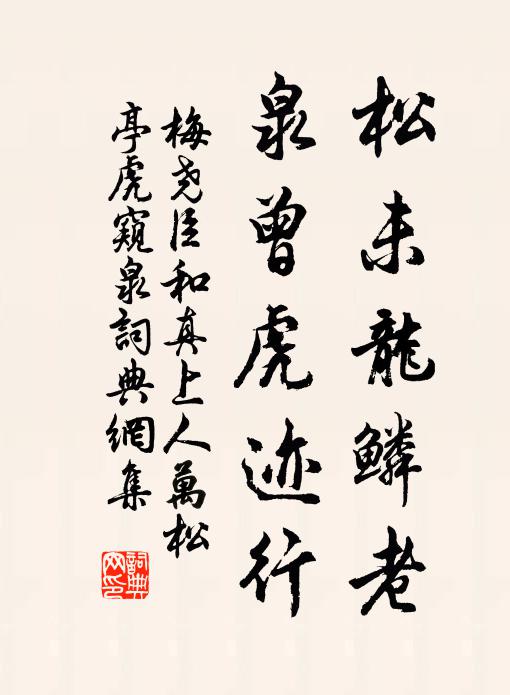 松未龍鱗老
泉曾虎迹行
梅尧臣和真上人萬松
亭虎窺泉詞典網集
詞典
网印